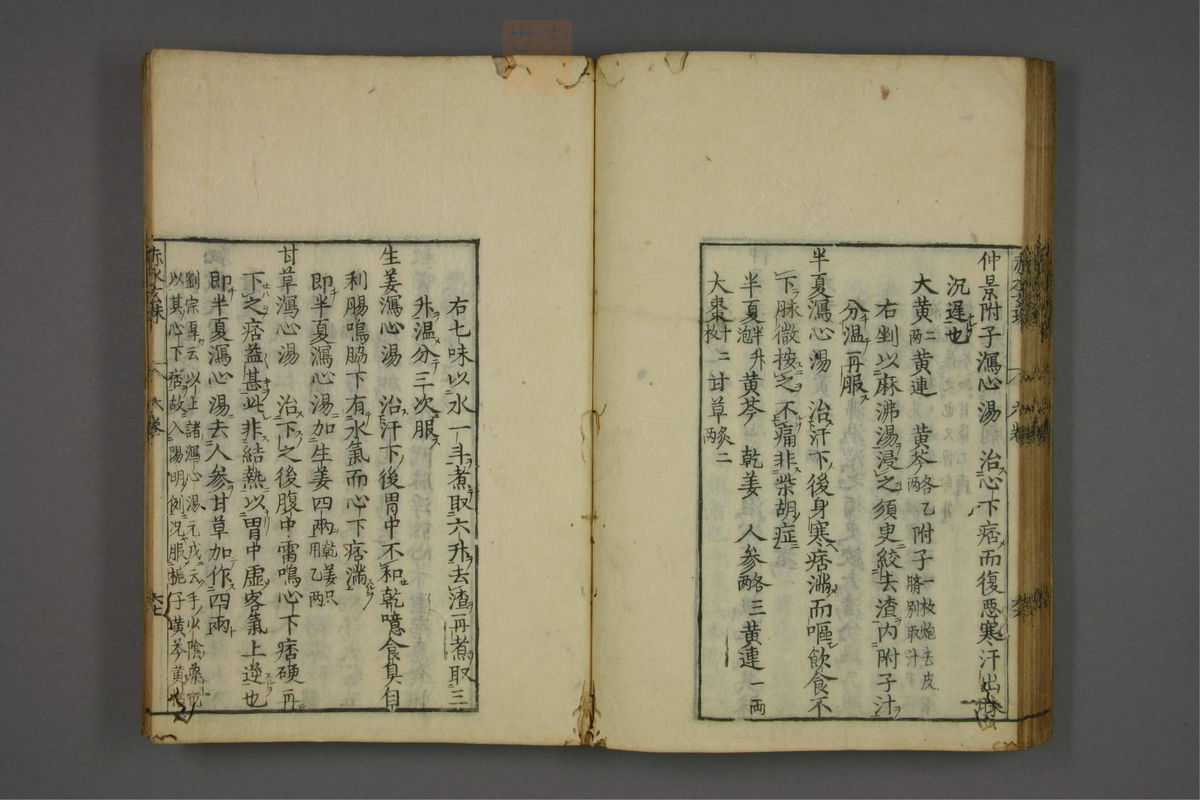 仲景附子瀉心湯 治心下痞而復惡寒汗出
沉遲也
大黃二兩 黃連 黃芩各乙兩 附子一枚炮去皮臍別取汁
右剉以麻沸湯浸之須臾絞去渣内附子汁
分温再服
半夏瀉心湯 治汗下後身寒痞滿而嘔飲食不
下脉微按之不痛非柴胡症
半夏半升泡 黃芩 乾姜 人參各三兩 黃連一兩
大棗十二枚 甘草炙二兩
右七味以水一斗煮取六升去渣再煮取三
升温分三次服
生姜瀉心湯 治汗下後胃中不和乾噫食臭自
利腸鳴脇下有水氣而心下痞滿
即半夏瀉心湯加生姜四兩乾姜只用乙兩
甘草瀉心湯 治下之後腹中雷鳴心下痞硬再
下之痞益甚此非結熱以胃中虛客氣上逆也
即半夏瀉心湯去人參甘草加作四兩
劉宗厚云以上諸瀉心湯元戎云手少陰藥也
以其心下痞故入陽明例況服梔子黃芩黃